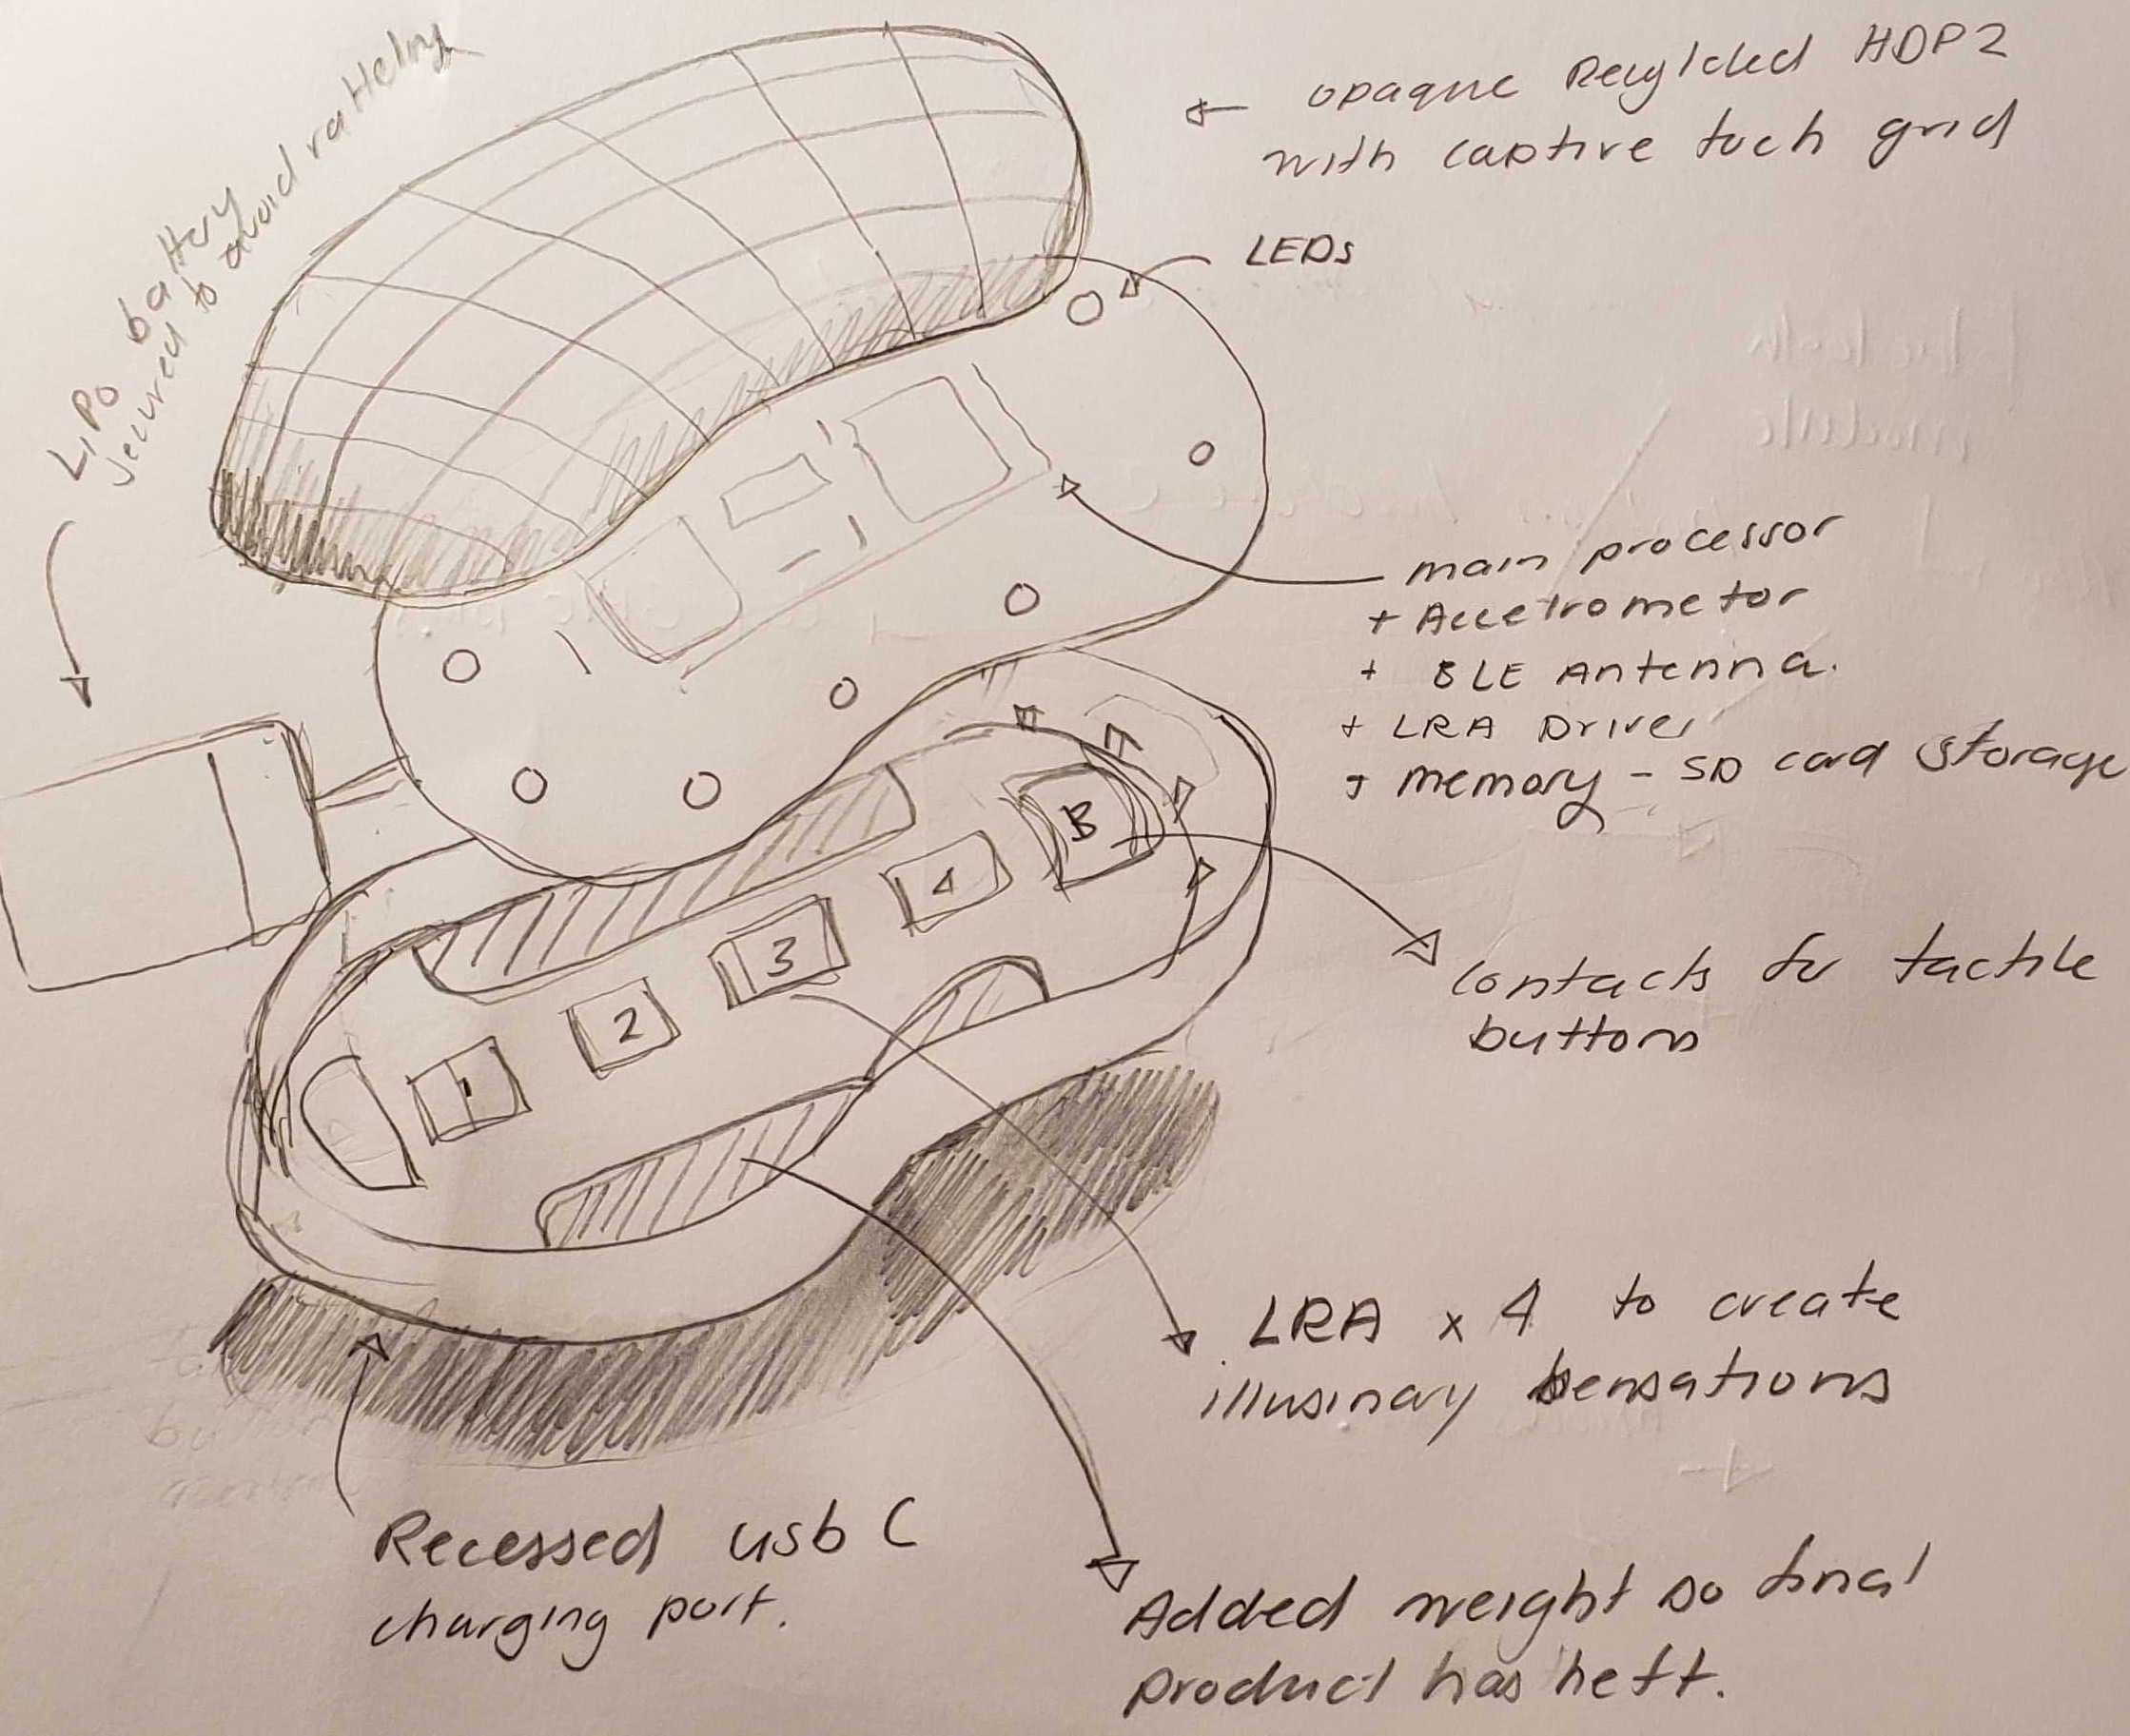 LiPo battery
secured to avoid rattling
opaque Recylcled HDP2
with captive tuch grid
LEDs
main processor
+ Acceltrometor
+ BLE Antenna.
+ LRA Driver
+ memory - SD card storage
B
4
3
2
1
contacts for tactile
buttons
LRA x 4 to create
illusinary sensations
Recessed usb C
charging port.
Added weight so final
product has heft.